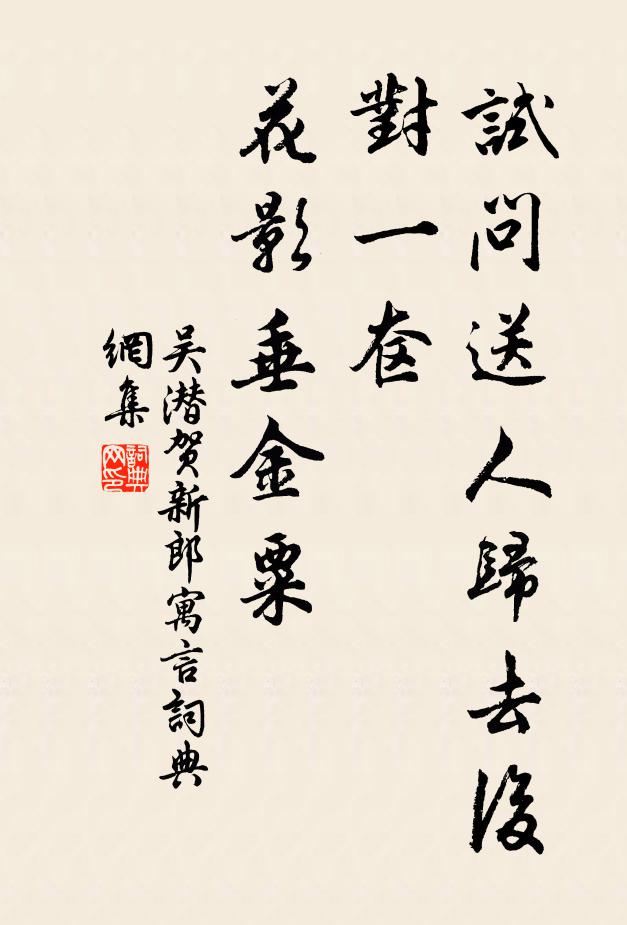 試問送人歸去後
對一奁
花影垂金粟
吴潜贺新郎寓言詞典
網集
詞典
网印